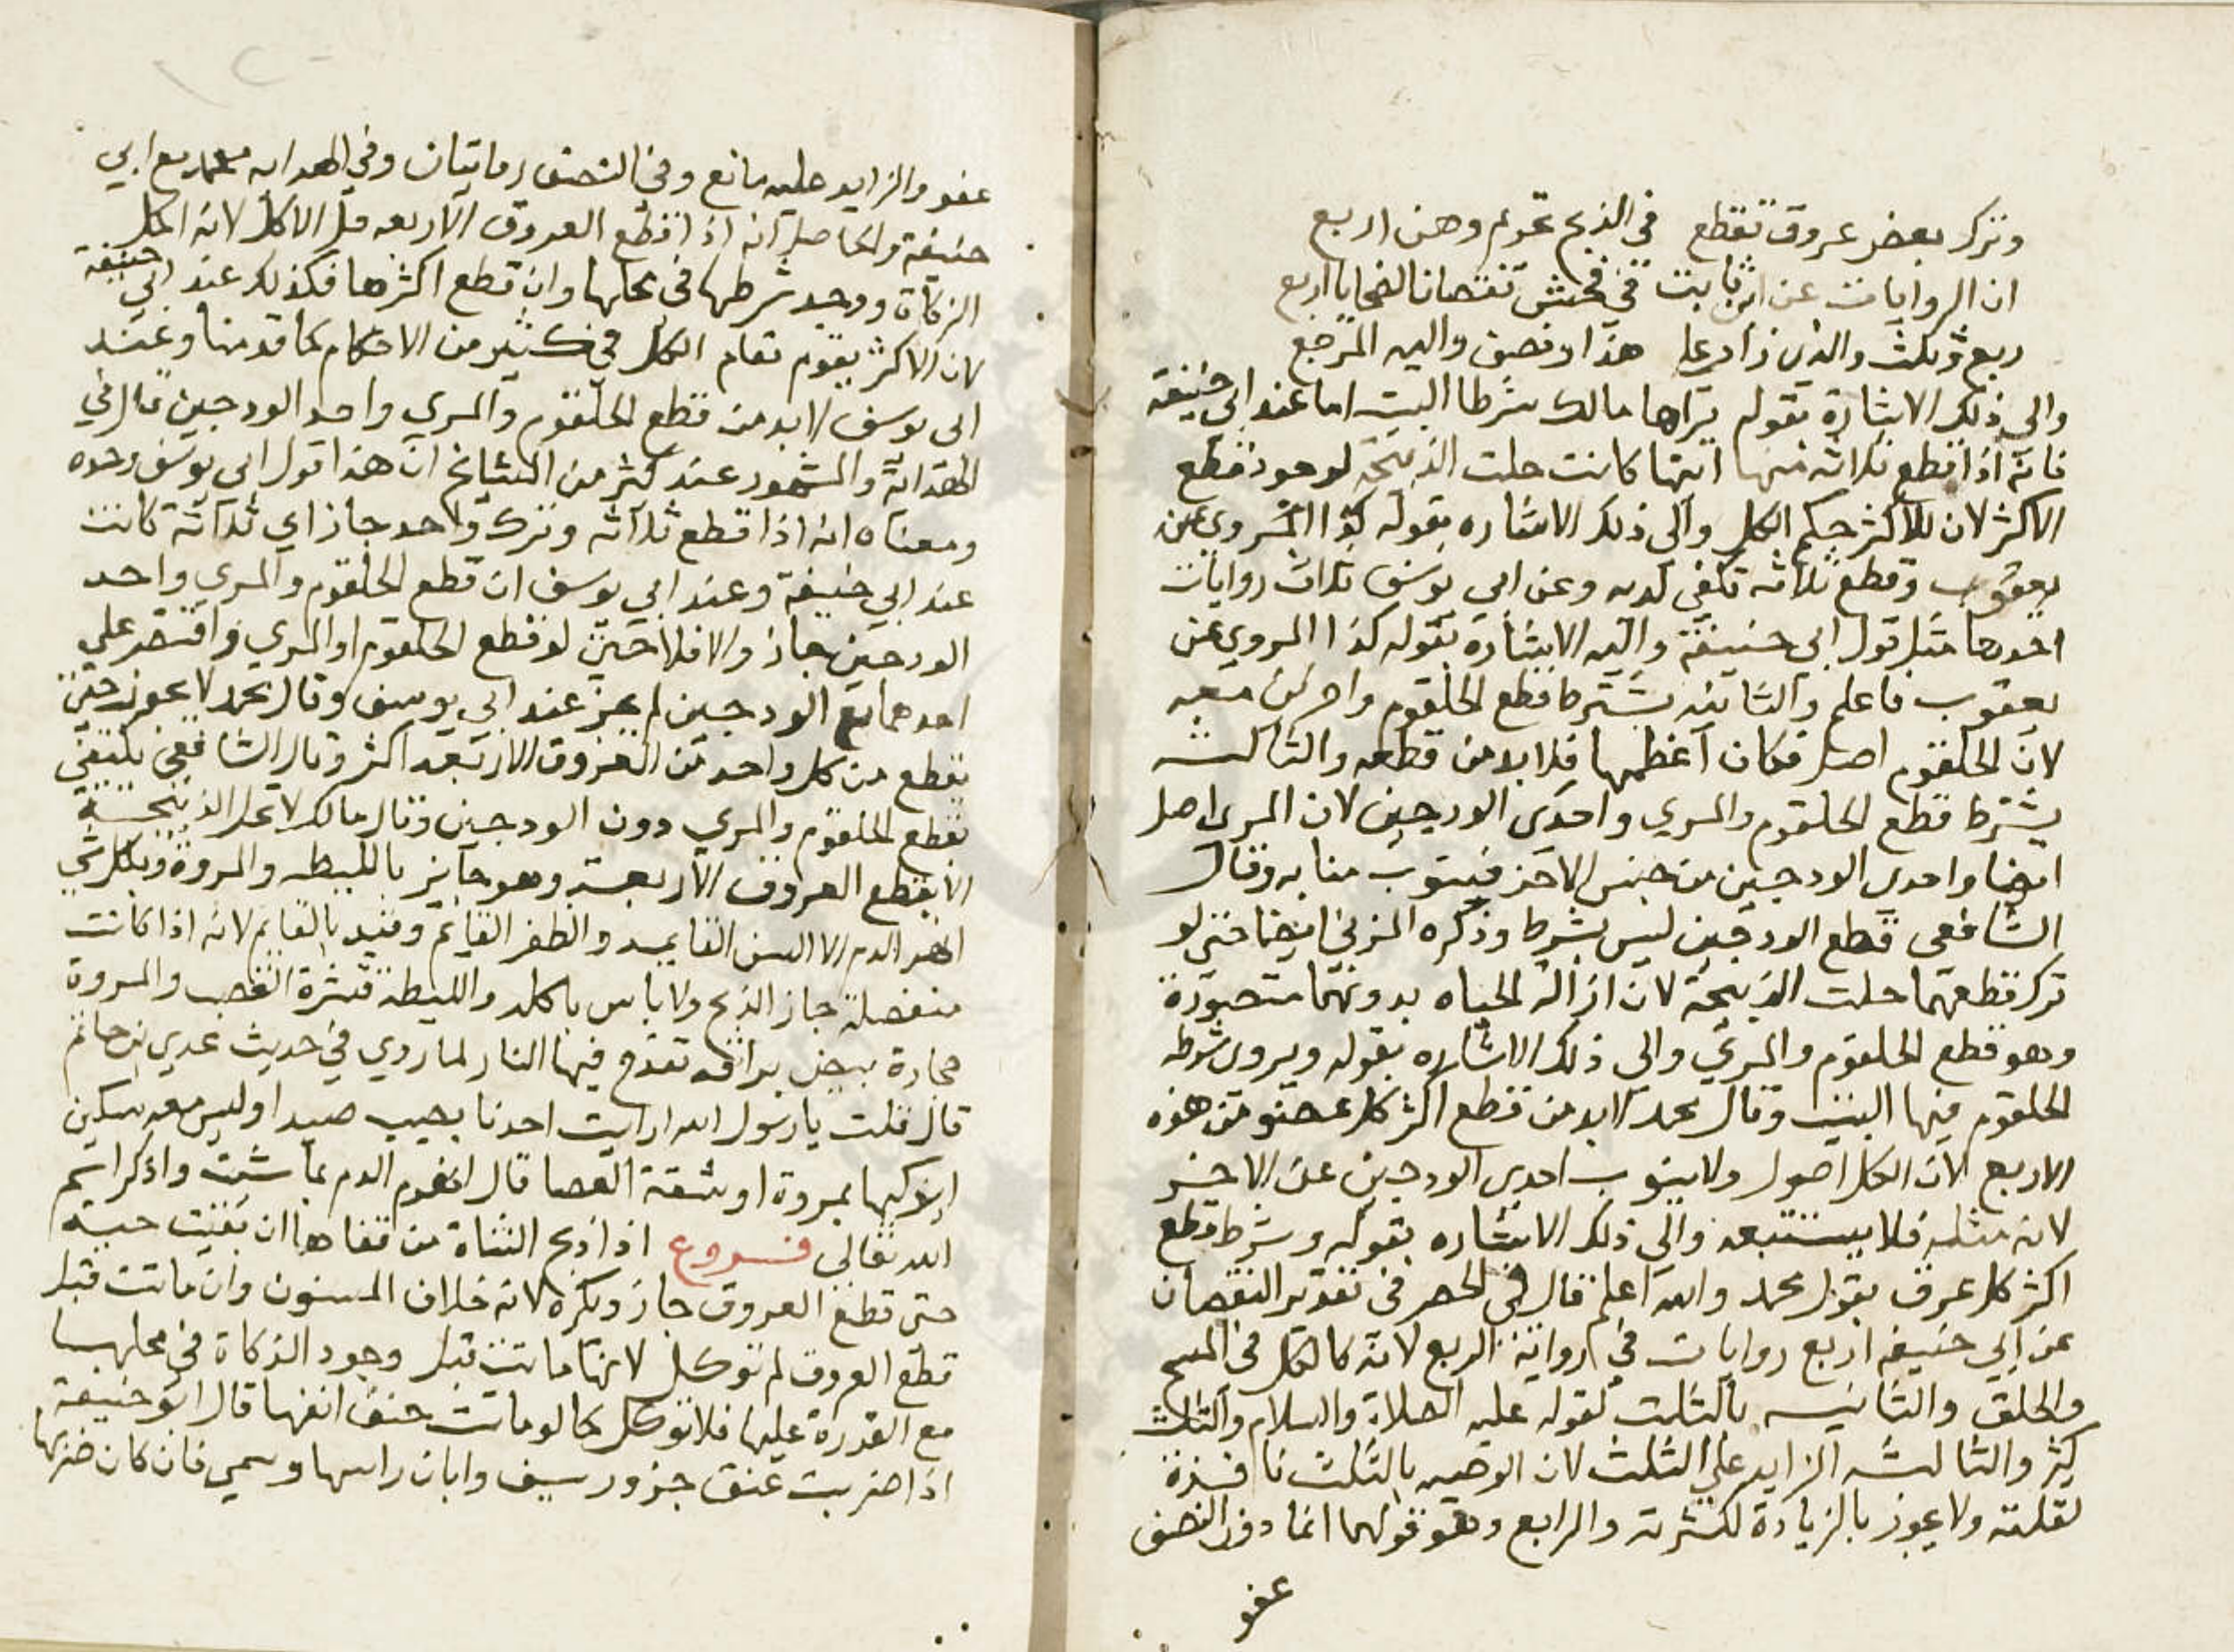 وترك بعض عروق تقطع في الذبح تحرم وهن اربع
ان الروايات عن ثابت في فحش نقصان الضحايا اربع
ربع وثلث والذي زاد على هذا ونصف واليه المرجع
والى ذلك الاشارة بقوله يراها مالك شرطا البيت اما عند ابي حنيفة
فانه اذا قطع ثلاثه منها ايتها كانت حلت الذبيحة لوجود قطع
الاكثر لان للاكثر حكم الكل والى ذلك الاشاره بقوله كذا المروي عن
يعقوب وقطع ثلاثه تكفي لديه وعن ابي يوسف ثلاث روايات
احدها مثل قول ابي حنيفة واليه الاشارة بقوله كذا المروي عن
يعقوب فاعلم والثانيه يشترط قطع الحلقوم واخرين معه
لان الحلقوم اصل فكان اعظمها فلا بد من قطعه والثالثه
يشترط قطع الحلقوم والمري واحدى الودجين لان المرى اصل
ايضا واحدى الودجين من جنس الاخر فينوب منابه وقال
الشافعى قطع الودجين ليس بشرط وذكره المزني ايضا حتى لو
ترك قطعهما حلت الذبيحة لان ازالة الحياه بدونهما متصورة
وهو قطع الحلقوم والمري والى ذلك الاشاره بقوله ويروى شرطه
الحلقوم فيها البيت وقال محمد لابد من قطع اكثر كل عضو من هذه
الاربع لان الكل اصول ولا ينوب احدى الودجين عن الاخر
لانه مثله فلا يستتبعه والى ذلك الاشاره بقوله وشرط قطع
اكثر كل عرق بقول محمد والله اعلم قال في الحصر في تقدير النقصان
عن ابي حنيفه اربع روايات في رواية الربع لانه كالكل في المسح
والحلق والثانيه بالثلث لقوله عليه الصلاة والسلام والثلث
كثير والثالثه الزايد على الثلث لان الوصيه بالثلث نافذة
لقلته ولا يجوز بالزيادة لكثرته والرابع وهو قولهما انما دون النصف
عفو
عفو والزايد عليه مانع وفي النصف روايتان وفي الهدايه محمد مع ابي
حنيفة والحاصل انه اذا قطع العروق الاربعه حل الاكل لانه اكمل
الزكاة ووجد شرطها في محلها وان قطع اكثرها فكذلك عند ابي حنيفة
لان الاكثر يقوم مقام الكل في كثير من الاحكام كما قدمنا وعند
ابى يوسف لابد من قطع الحلقوم والمري واحد الودجين قال في
الهداية والمشهور عند كثير من المشايخ ان هذا قول ابى يوسف وحده
ومعناه انه اذا قطع ثلاثه وترك واحد جاز اي ثلاثة كانت
عند ابي حنيفة وعند ابي يوسف ان قطع الحلقوم والمري واحد
الودجين جاز والا فلا حتى لو قطع الحلقوم او المري واقتصر على
احدهما مع الودجين لم يجز عند ابي يوسف وقال محمد لا يجوز حتى
يقطع من كل واحد من العروق الاربعه اكثر وقال الشافعي يكتفي
بقطع الحلقوم والمري دون الودجين وقال مالك لا تحل الذبيحة
الا بقطع العروق الاربعة وهو جايز بالليطه والمروة وبكل شي
انهر الدم الا السن القايمه والظفر القايم وقيد بالقايم لانه اذا كانت
منفصلة جاز الذبح ولا باس باكله والليطه قشرة القصب والمروة
حجارة بيض براقه تقدح فيها النار لما روي في حديث عدي بن حاتم
قال قلت يا رسول الله ارايت احدنا يصيب صيدا وليس معه سكين
ايذكيها بمروة او شقة العصا قال انهر الدم بما شيت واذكر اسم
الله تعالى فروع اذا ذبح الشاة من قفاها ان بقيت حية
حتى قطع العروق جاز ويكره لانه خلاف المسنون وان ماتت قبل
قطع العروق لم توكل لانها ماتت قبل وجود الذكاة في محلها
مع القدرة عليها فلا توكل كما لو ماتت حتف انفها قال ابو حنيفة
اذا ضربت عنق جزور بسيف وابان راسها وسمي فان كان ضربها